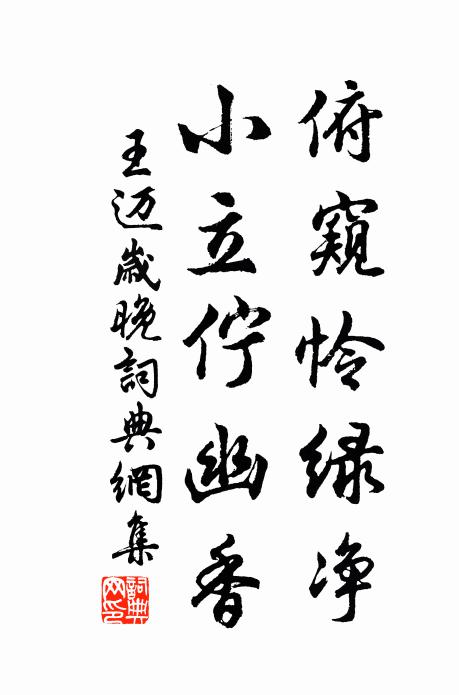 俯窺怜緑净
小立佇幽香
王迈歲晚詞典網集
詞典网印